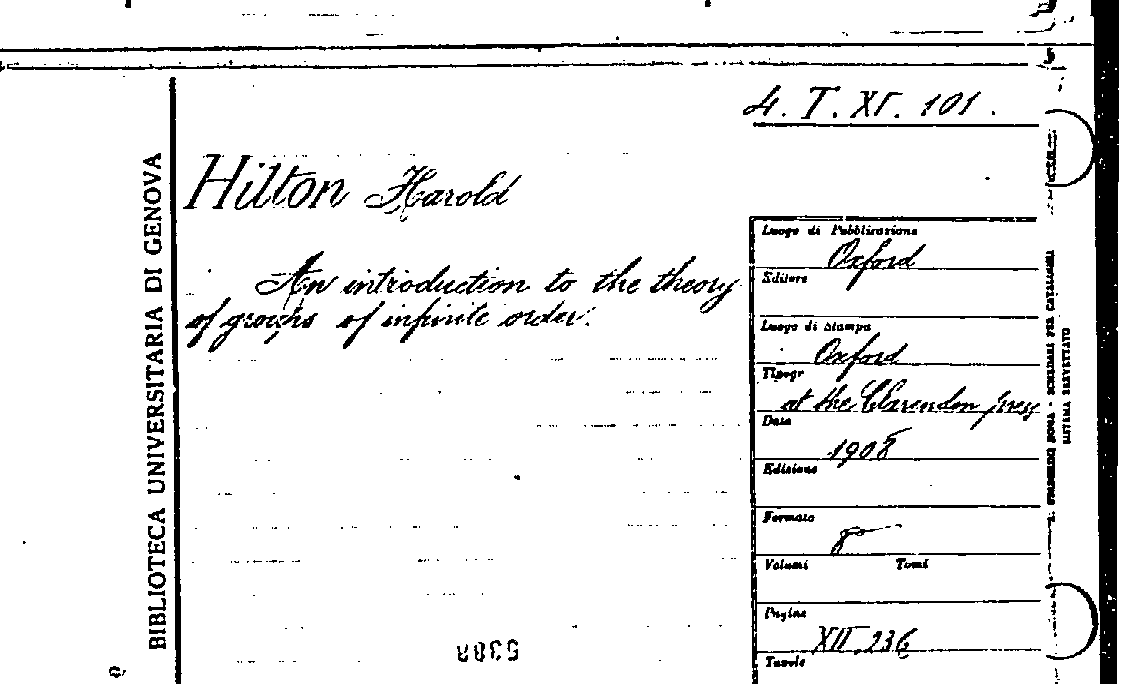 4. T. XI. 101.
BIBLIOTECA UNIVERSITARIA DI GENOVA
Hilton Harold
An introduction to the theory
of groups of infinite order.
Luogo di Pubblicazione
Oxford
Editore
Luogo di Stampa
Oxford
Tipogr
at the Clarendon press
Data
1908
Edizione
Formato
8°
Volumi Tomi
Pagine
XII. 236
Tavole
ROMA - SCHEDARI PER CATALOGHI
SISTEMA BREVETTATO